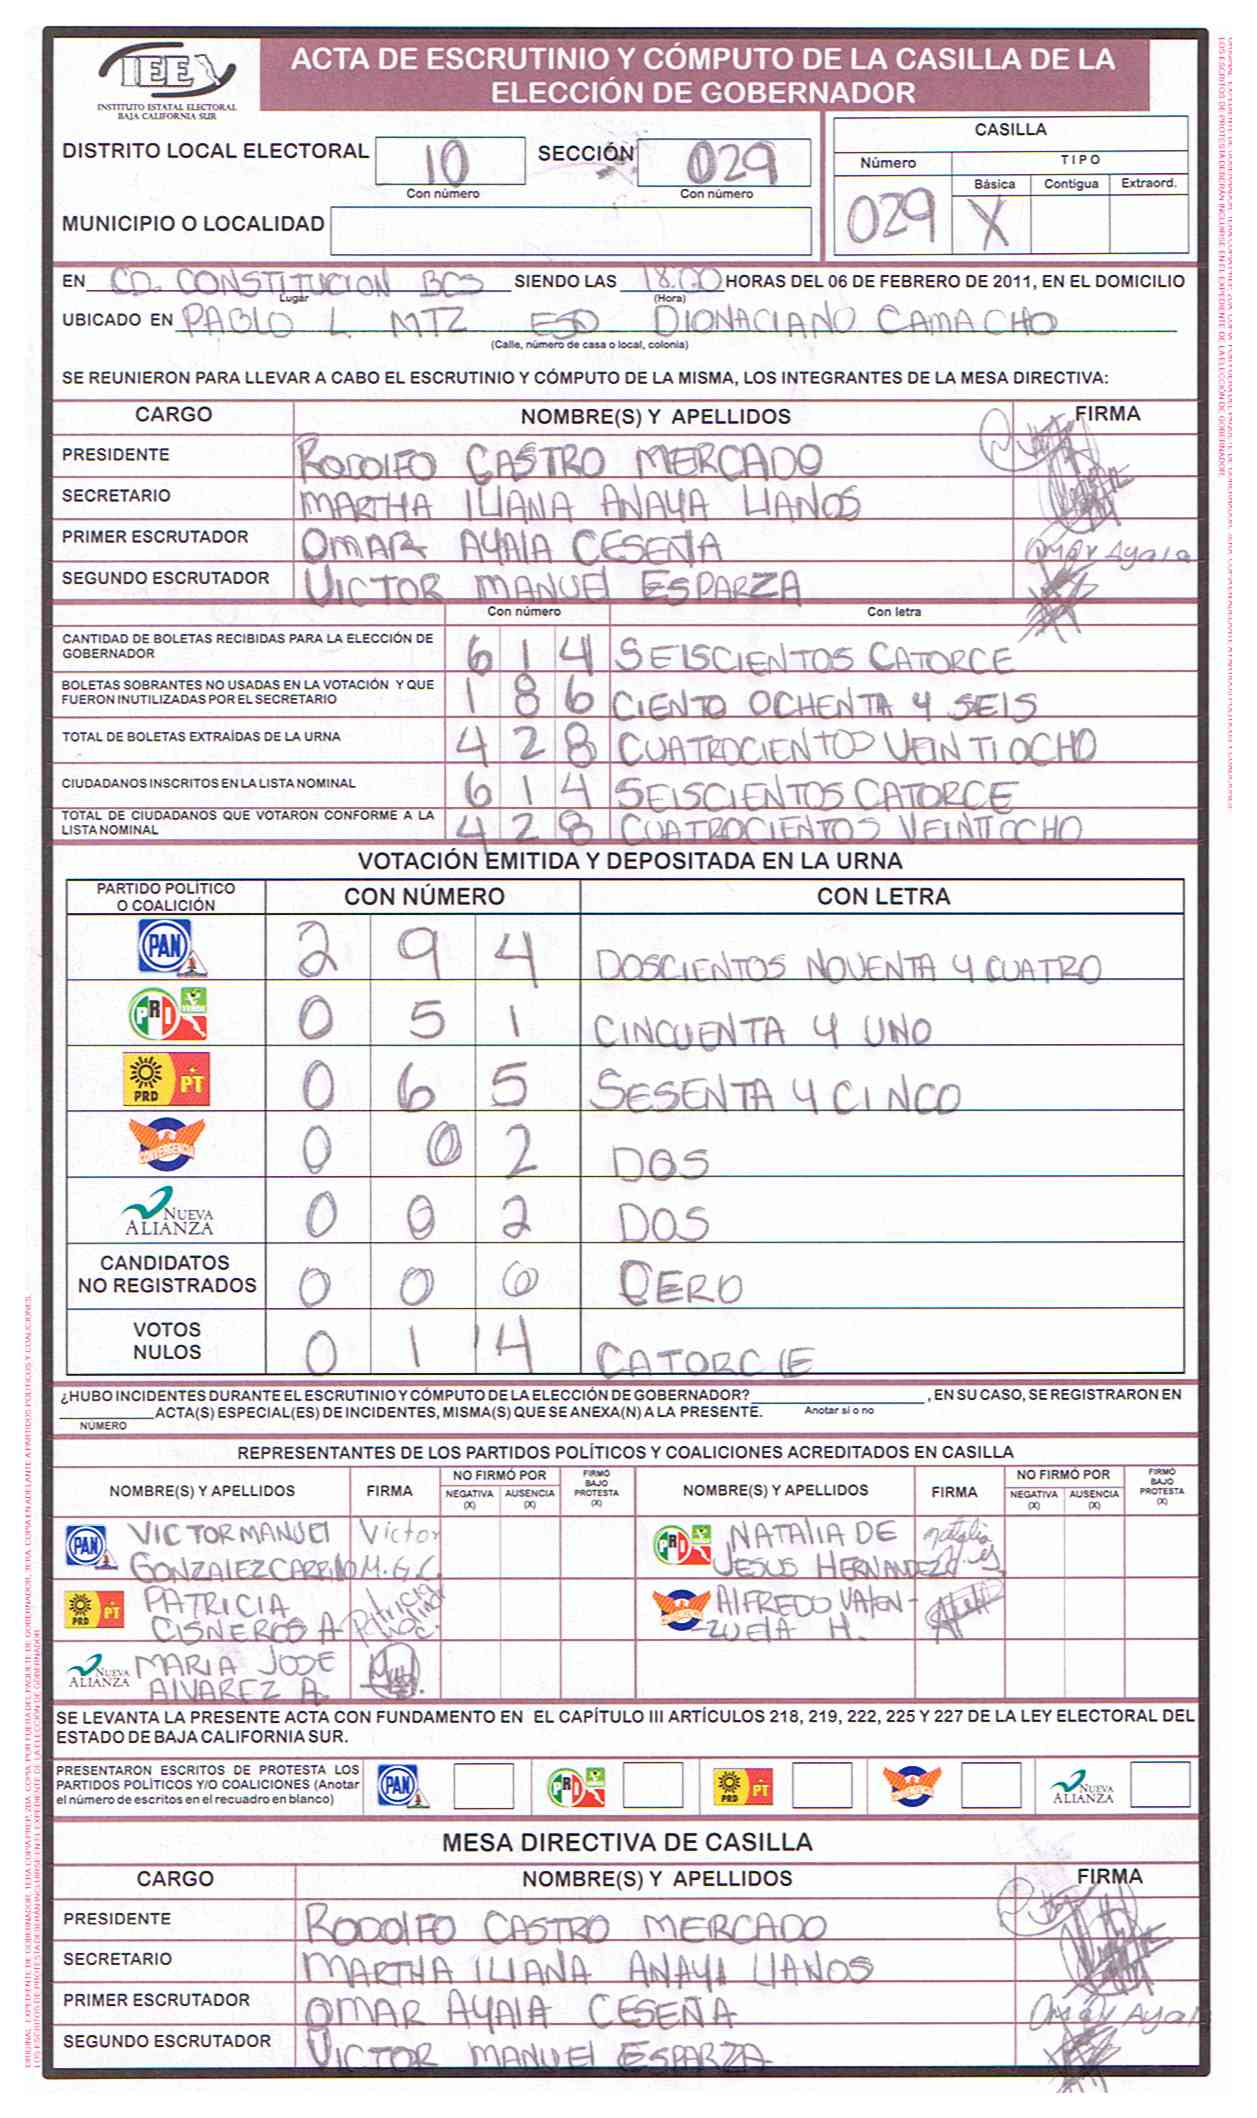 IEE
INSTITUTO ESTATAL ELECTORAL
BAJA CALIFORNIA SUR
ACTA DE ESCRUTINIO Y CÓMPUTO DE LA CASILLA DE LA
ELECCIÓN DE GOBERNADOR
DISTRITO LOCAL ELECTORAL 10 SECCIÓN 029
Con número Con número
MUNICIPIO O LOCALIDAD
CASILLA
Número TIPO
Básica Contigua Extraord.
029 X
EN CD. CONSTITUCION BCS SIENDO LAS 18:00 HORAS DEL 06 DE FEBRERO DE 2011, EN EL DOMICILIO
Lugar (Hora)
UBICADO EN PABLO L MTZ ESQ DIONACIANO CAMACHO
(Calle, número de casa o local, colonia)
SE REUNIERON PARA LLEVAR A CABO EL ESCRUTINIO Y CÓMPUTO DE LA MISMA, LOS INTEGRANTES DE LA MESA DIRECTIVA:
CARGO NOMBRE(S) Y APELLIDOS FIRMA
PRESIDENTE RODOLFO CASTRO MERCADO
SECRETARIO MARTHA ILIANA ANAYA LLANOS
PRIMER ESCRUTADOR OMAR AYALA CESEÑA Omar Ayala
SEGUNDO ESCRUTADOR VICTOR MANUEL ESPARZA
Con número Con letra
CANTIDAD DE BOLETAS RECIBIDAS PARA LA ELECCIÓN DE
GOBERNADOR 6 1 4 SEISCIENTOS CATORCE
BOLETAS SOBRANTES NO USADAS EN LA VOTACIÓN Y QUE
FUERON INUTILIZADAS POR EL SECRETARIO 1 8 6 CIENTO OCHENTA Y SEIS
TOTAL DE BOLETAS EXTRAÍDAS DE LA URNA 4 2 8 CUATROCIENTOS VEINTIOCHO
CIUDADANOS INSCRITOS EN LA LISTA NOMINAL 6 1 4 SEISCIENTOS CATORCE
TOTAL DE CIUDADANOS QUE VOTARON CONFORME A LA
LISTA NOMINAL 4 2 8 CUATROCIENTOS VEINTIOCHO
VOTACIÓN EMITIDA Y DEPOSITADA EN LA URNA
PARTIDO POLÍTICO
O COALICIÓN CON NÚMERO CON LETRA
PAN 2 9 4 DOSCIENTOS NOVENTA Y CUATRO
PRI VERDE 0 5 1 CINCUENTA Y UNO
PRD PT 0 6 5 SESENTA Y CINCO
CONVERGENCIA 0 0 2 DOS
NUEVA ALIANZA 0 0 2 DOS
CANDIDATOS
NO REGISTRADOS 0 0 0 CERO
VOTOS
NULOS 0 1 4 CATORCE
¿HUBO INCIDENTES DURANTE EL ESCRUTINIO Y CÓMPUTO DE LA ELECCIÓN DE GOBERNADOR? , EN SU CASO, SE REGISTRARON EN
ACTA(S) ESPECIAL(ES) DE INCIDENTES, MISMA(S) QUE SE ANEXA(N) A LA PRESENTE. Anotar si o no
NÚMERO
REPRESENTANTES DE LOS PARTIDOS POLÍTICOS Y COALICIONES ACREDITADOS EN CASILLA
NOMBRE(S) Y APELLIDOS FIRMA NO FIRMÓ POR NEGATIVA (X) AUSENCIA (X) FIRMÓ BAJO PROTESTA (X) NOMBRE(S) Y APELLIDOS FIRMA NO FIRMÓ POR NEGATIVA (X) AUSENCIA (X) FIRMÓ BAJO PROTESTA (X)
PAN VICTOR MANUEL Victor PRI NATALIA DE natalia
GONZALEZ CARRILLO M.G.C. JESUS HERNANDEZ
PRD PT PATRICIA Patricia CONVERGENCIA ALFREDO VALEN-
CISNEROS A. ZUELA H.
NUEVA ALIANZA MARIA JOSE
ALVAREZ A.
SE LEVANTA LA PRESENTE ACTA CON FUNDAMENTO EN EL CAPÍTULO III ARTÍCULOS 218, 219, 222, 225 Y 227 DE LA LEY ELECTORAL DEL
ESTADO DE BAJA CALIFORNIA SUR.
PRESENTARON ESCRITOS DE PROTESTA LOS
PARTIDOS POLÍTICOS Y/O COALICIONES (Anotar
el número de escritos en el recuadro en blanco)
PAN PRI PRD PT CONVERGENCIA NUEVA ALIANZA
MESA DIRECTIVA DE CASILLA
CARGO NOMBRE(S) Y APELLIDOS FIRMA
PRESIDENTE RODOLFO CASTRO MERCADO
SECRETARIO MARTHA ILIANA ANAYA LLANOS
PRIMER ESCRUTADOR OMAR AYALA CESEÑA Omar Ayala
SEGUNDO ESCRUTADOR VICTOR MANUEL ESPARZA